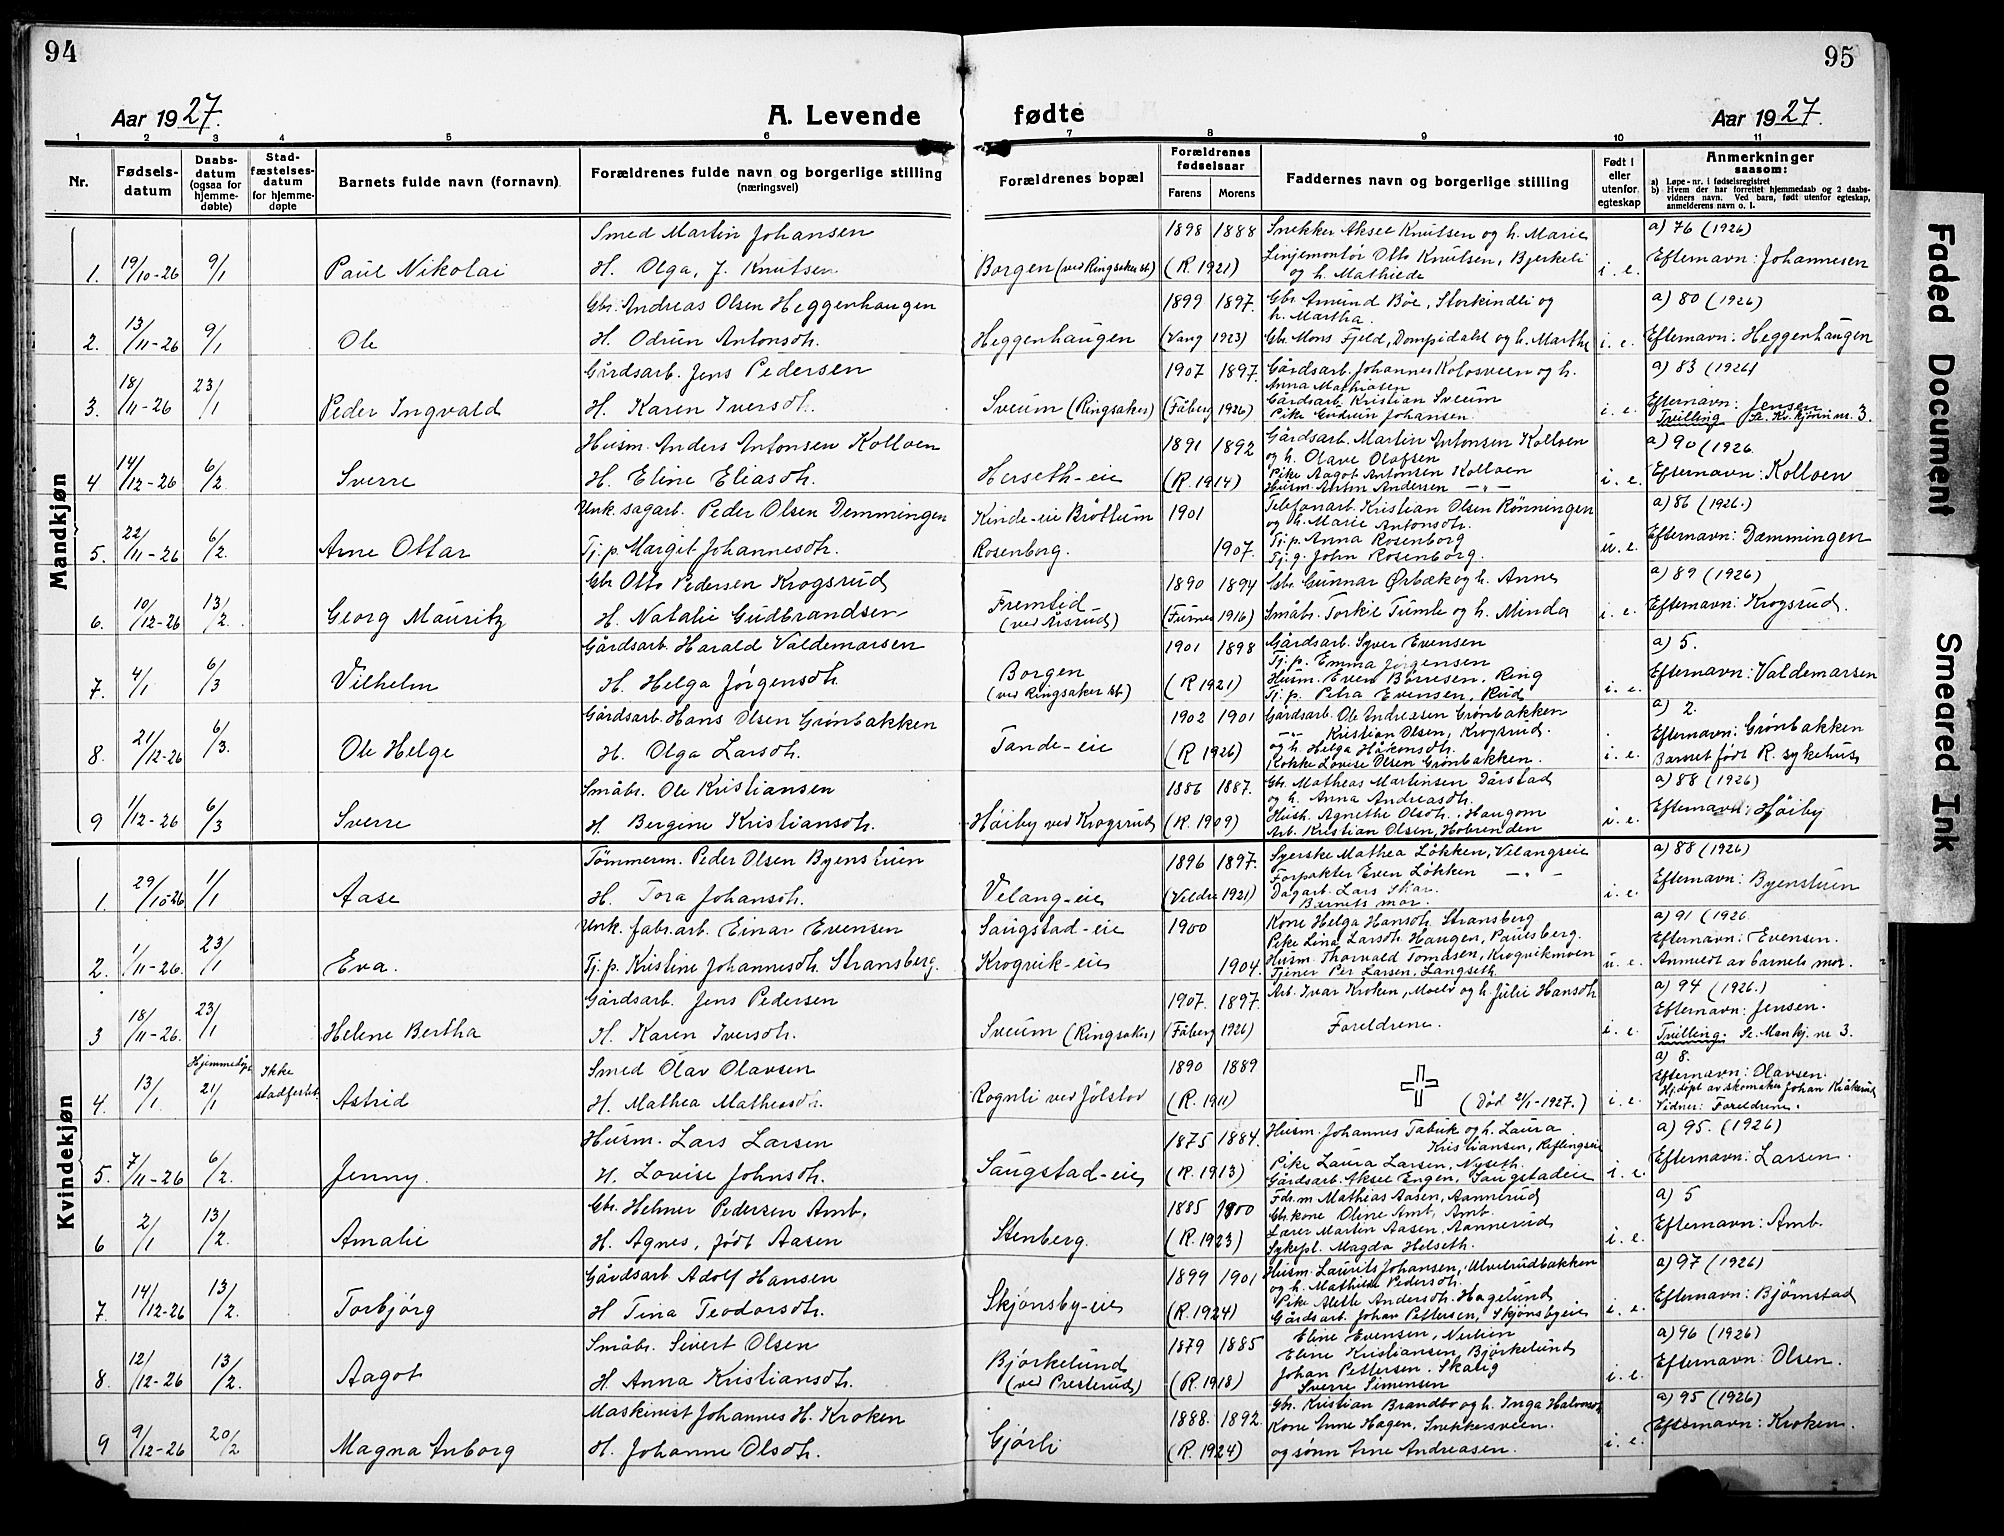 94
95
Aar 1927.
A. Levende
fødte
Aar 1927.
1 2 3 4 5 6 7 8 9 10 11
Nr.
Fødsels-
datum
Daabs-
datum
(ogsaa for
hjemme-
døbte)
Stad-
fæstelses-
datum
for hjemme-
døpte
Barnets fulde navn (fornavn)
Forældrenes fulde navn og borgerlige stilling
(næringsvei)
Forældrenes bopæl
Forældrenes
fødselsaar
Farens Morens
Faddernes navn og borgerlige stilling
Født i
eller
utenfor
egteskap
Anmerkninger
saasom:
a) Løpe-nr. i fødselsregistret
b) Hvem der har forrettet hjemmedaab og 2 daabs-
vidners navn. Ved barn, født utenfor egteskap,
anmelderens navn o. l.
Mandkjøn
Smed Martin Johansen 1898 1888 Snekker Aksel Knutsen og h. Marie a) 76 (1926)
1. 19/10-26 9/1 Paul Nikolai H. Olga, J. Knutsen Borgen (ved Ringsaker st) (R. 1921) Linjemontør Otto Knutsen, Bjerkeli i. e. Efternavn: Johannesen
og h. Mathilde
Gbr. Andreas Olsen Heggenhaugen 1899 1897. Gbr Amund Bøe, Storkindli og a) 80 (1926)
h. Martha.
2. 13/11-26 9/1 Ole H. Odrun Antonsdh. Heggenhaugen (Vang 1923) Gbr. Mons Fjeld, Dompidalst og h. Marthe i. e. Efternavn: Heggenhaugen
Gårdsarb. Jens Pedersen 1907 1897. Gårdsarb. Johannes Kolosveen og h. a) 83 (1926)
Anna Mathiasen
3. 18/11-26 23/1 Peder Ingvald H. Karen Iversdh. Sveum (Ringsaker) (Fåberg 1926) Gårdsarb. Kristian Sveum i. e. Efternavn: Jensen
Pike Gudrun Johansen. Tvilling Se. Kv.kjønn nr. 3.
Husm. Anders Antonsen Kolloen 1891 1892 Gårdsarb. Martin Antonsen Kolloen a) 90 (1926.
og h. Olave Olafsen
4 14/12-26 6/2 Sverre H. Eline Eliasdh. Herseth-eie (R. 1914) Pike Aagot Antonsen Kolloen i. e. Efternavn: Kolloen
Husm. Anton Andersen -"-
Unk. sagarb. Peder Olsen Demmingen Kinde-eie Brøttum 1901 Telefonarb. Kristian Olsen Rønningen a) 86 (1926.)
og h. Marie Antonsdh.
5. 22/11-26 6/2. Arne Ottar Tj. p. Margit Johannesdh. Rosenborg. 1907. Tj. p. Anna Rosenborg u. e. Efternavn: Dæmmingen
Tj. g. John Rosenborg.
Gbr Otto Pedersen Krogsrud 1890 1894 Gbr. Gunnar Ørbæk og h. Anne a) 89 (1926)
6. 10/12-26 13/2. Georg Mauritz H. Natalie Gudbrandsen Fremtid (Furnes 1916) Småbr. Torkil Tumle og h. Minda i. e. Efternavn: Krogsrud.
(ved Åsrud)
Gårdsarb. Harald Valdemarsen 1901 1898 Gårdsarb. Syver Evensen a) 5.
Tj. p. Emma Jørgensen
7. 4/1 6/3 Vilhelm H. Helga Jørgensdh. Borgen (R 1921) Husm. Even Børresen, Ring i. e. Efternavn: Valdemarsen
(ved Ringsaker st) Tj. p. Petra Evensen, Rud
Gårdsarb. Hans Olsen Grønbakken 1902 1901 Gårdsarb. Ole Andreasen Grønbakken a) 2.
-"- Kristian Olsen, Krogsrud. Efternavn: Grønbakken
8. 21/12-26 6/3. Ole Helge H. Olga Larsdh. Tande-eie (R 1926) og h. Helga Håkonsdh. i. e. Barnet født R. sykehus
Kokke Lovise Olsen Grønbakken.
Småbr. Ole Kristiansen 1886 1887. Gbr. Matheas Martinsen Dårstad a) 88 (1926)
og h. Anna Andreasdh.
9 1/12-26 6/3 Sverre H. Bergine Kristiansdh. Høiby ved Krogsrud (R. 1909) Hush. Agnethe Olsdh. Haugom i. e. Efternavn: Høiby
Arb. Kristian Olsen, Hobrenden
Kvindekjøn
Tømmerm. Peder Olsen Byenstuen 1896 1897. Syerske Mathea Løkken, Velangseie a) 88 (1926)
Forpakter Even Løkken -"-
1. 29/10-26 1/1 Aase H. Tora Johansdh. Velang-eie (Veldre 1921) Dagarb. Lars Skar. i. e. Efternavn: Byenstuen
Barnets mor.
Unk. fabr.arb. Einar Evensen Saugstad-eie 1900 Kone Helga Hansdh. Stransberg a) 91 (1926.
Pike Lina Larsdh. Haugen, Paulsberg. Efternavn: Evensen.
2. 1/11-26. 23/1 Eva. Tj. p. Kristine Johannesdh. Stransberg. Krogvik-eie 1904. Husm. Thorvald Tomasen, Krogvikmoen u. e. Anmeldt av barnets mor.
Tjener Per Larsen, Langseth.
Gårdsarb. Jens Pedersen 1907. 1897. Arb. Ivar Kroken, Moelv og h. Julie Hansdh a) 94 (1926.)
3 18/11-26. 23/1 Helene Bertha H. Karen Iversdh. Sveum (Ringsaker) (Fåberg 1926) Foreldrene. i. e. Efternavn: Jensen.
Tvilling. Se Mankj. nr 3.
Hjemmedøpt Ikke Smed Olav Olavsen 1890 1889 a) 8.
stadfestet Efternavn: Olavsen.
4. 13/1 21/1 Astrid H. Mathea Matheasdh. Rognli ved Jølstad (R. 1911) (Død 21/1-1927.) i. e. Hj.døpt av skomaker Johan Kråkerud
Vidner: Foreldrene.
Husm. Lars Larsen 1875 1884. Husm. Johannes Tabuk og h. Laura a) 95. (1926)
Kristiansen, Reflingseie
5. 7/11-26 6/2. Jenny. H. Lovise Johnsdh. Saugstad-eie (R. 1913) Pike Laura Larsen, Nyseth. i. e. Efternavn: Larsen.
Gårdsarb. Aksel Engen, Saugstadeie
Gbr. Helmer Pedersen Amb. 1885 1900 Fdr.m Mathias Aasen, Aannerud a) 5
Gbr.kone Oline Amb, Amb.
6 2/1 13/2. Amalie H. Agnes, født Aasen Stenberg. (R. 1923) Lærer Martin Aasen, Aannerud i. e. Efternavn: Amb.
Sykepl. Magda Helseth.
Gårdsarb. Adolf Hansen 1899 1901 Husm. Laurits Johansen, Ulvelrudbakken a) 97 (1926)
og h. Mathilde Pedersdh.
7. 14/12-26 13/2. Torbjørg H Tina Teodorsdh. Skjønsby-eie (R. 1924) Pike Alette Andersdh. Hagelund i. e. Efternavn: Bjørnstad
Gårdsarb. Johan Pettersen, Skjønsbyeie
Småbr. Sivert Olsen 1879 1885 Eline Evensen, Nerlien a) 96 (1926)
Eline Kristiansen, Bjørkelund
8. 12/12-26 13/2. Aagot H. Anna Kristiansdh. Bjørkelund (R. 1918) Johan Pettersen. Skaug i. e. Efternavn: Olsen.
(ved Presterud) Sverre Simensen
Maskinist Johannes H. Kroken 1888. 1892. Gbr. Kristian Brandbo og h. Inga Halvorsdh a) 95 (1926)
9 9/12-26 20/2 Magna Anborg H. Johanne Olsdh. Gjørli (R. 1924) Kone Anne Hagen, Snekkersveen. i. e. Efternavn: Kroken.
og sønn Arne Andreasen.
Faded Document
Smeared Ink